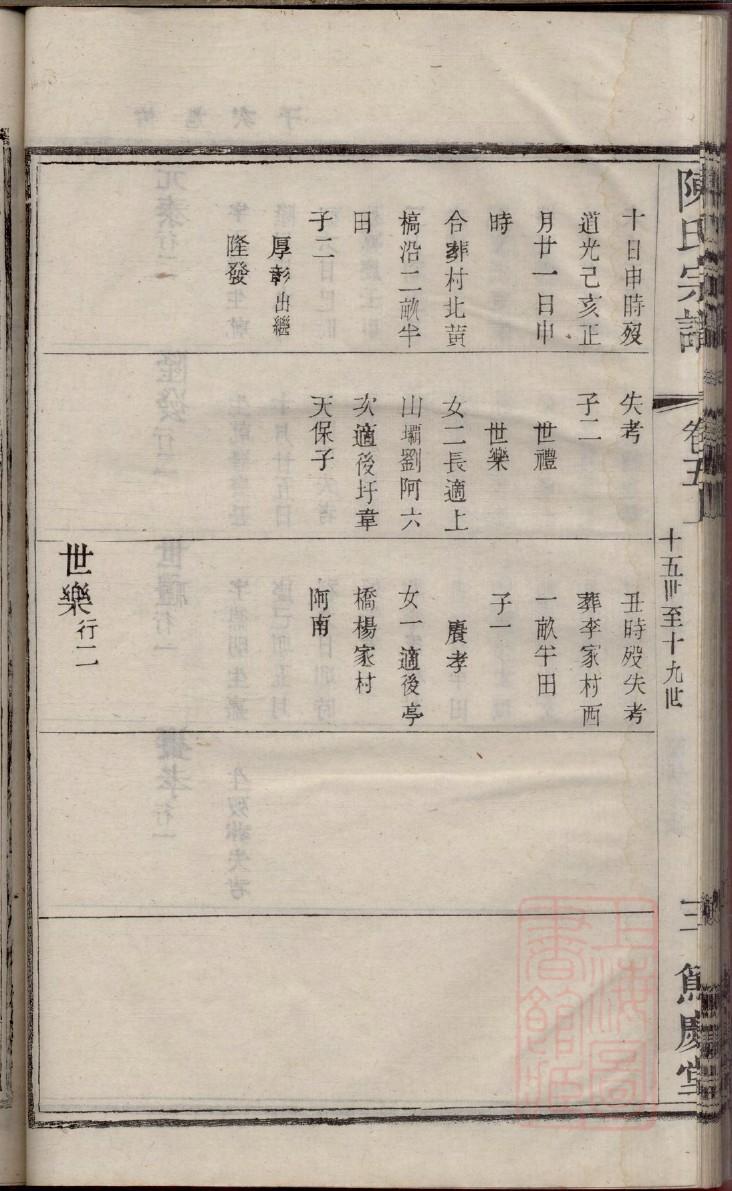 陳氏宗譜
卷五上
十五世至十九世
三
慶堂
十日申時歿
道光己亥正
月廿一日申
時
合葬村北黃
槁沿二畝半
田
子二
厚彰出繼
隆發
失考
子二
世禮
世樂
女二長適上
山壩劉阿六
次適後圩韋
天保子
丑時歿失考
葬李家村西
一畝半田
子一
賡孝
女一適後亭
橋楊家村
阿南
世樂行二
上海圖書館藏